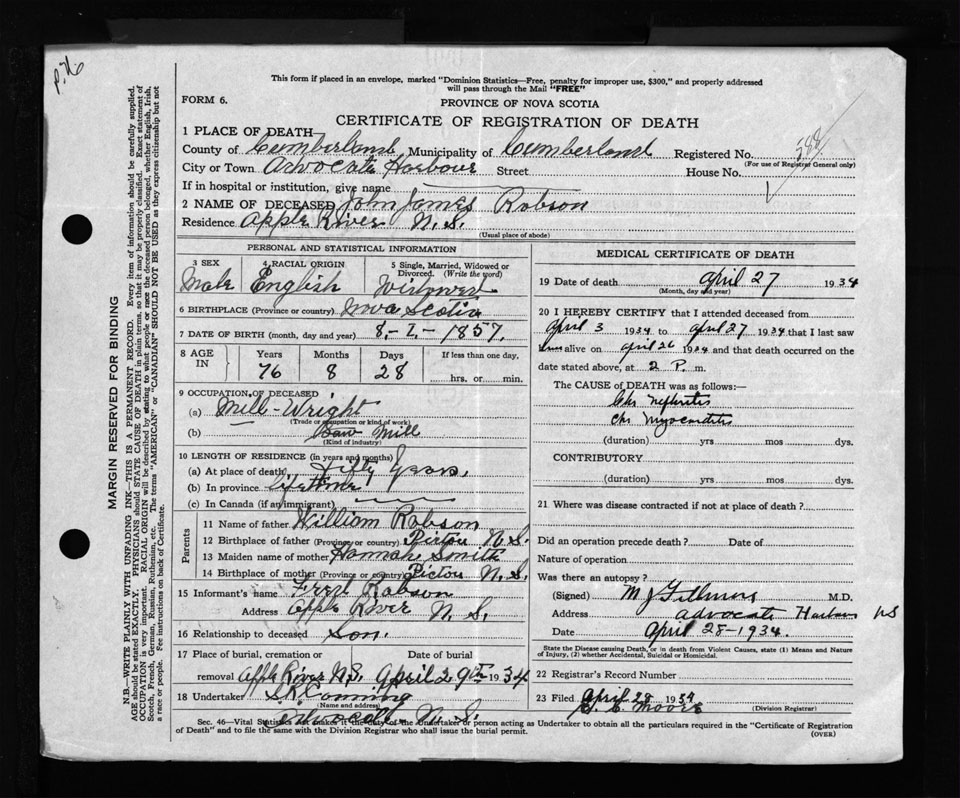 p. 76
This form if placed in an envelope, marked "Dominion Statistics—Free, penalty for improper use, $300," and properly addressed
will pass through the Mail "FREE"
FORM 6.
PROVINCE OF NOVA SCOTIA
CERTIFICATE OF REGISTRATION OF DEATH
1 PLACE OF DEATH—
County of Cumberland, Municipality of Cumberland Registered No. 588
(For use of Registrar General only)
City or Town Advocate Harbour Street House No.
If in hospital or institution, give name
2 NAME OF DECEASED John James Robson
Residence Apple River N.S.
(Usual place of abode)
PERSONAL AND STATISTICAL INFORMATION
3 SEX Male
4 RACIAL ORIGIN English
5 Single, Married, Widowed or Divorced. (Write the word) Widowed
6 BIRTHPLACE (Province or country) Nova Scotia
7 DATE OF BIRTH (month, day and year) 8-1-1857.
8 AGE IN Years Months Days If less than one day,
76 8 28 hrs. or min.
9 OCCUPATION OF DECEASED
(a) Mill-Wright
(Trade or occupation or kind of work)
(b) Saw Mill
(Kind of industry)
10 LENGTH OF RESIDENCE (in years and months)
(a) At place of death Fifty Years.
(b) In province lifetime
(c) In Canada (if an immigrant)
Parents
11 Name of father William Robson
12 Birthplace of father (Province or country) Pictou N.S.
13 Maiden name of mother Hannah Smith
14 Birthplace of mother (Province or country) Pictou N.S.
15 Informant's name Robson
Address Apple River N.S.
16 Relationship to deceased Son.
17 Place of burial, cremation or Date of burial
removal Apple River N.S. April 29th 1934
18 Undertaker S.K. Canning
(Name and address)
Advocate N.S.
MEDICAL CERTIFICATE OF DEATH
19 Date of death April 27 1934
(Month, day and year)
20 I HEREBY CERTIFY that I attended deceased from
April 3 1934 to April 27 1934 that I last saw
him alive on April 26 1934 and that death occurred on the
date stated above, at 2 P. m.
The CAUSE OF DEATH was as follows:—
Chr Nephritis
Chr Myocarditis
(duration) yrs mos dys.
CONTRIBUTORY
(duration) yrs. mos. dys.
21 Where was disease contracted if not at place of death?
Did an operation precede death? Date of
Nature of operation
Was there an autopsy?
(Signed) M.D.
Address Advocate Harbour NS
Date April 28-1934.
State the Disease causing Death, or in death from Violent Causes, state (1) Means and Nature
of Injury, (2) whether Accidental, Suicidal or Homicidal.
22 Registrar's Record Number
23 Filed April 28 1934
Moore
(Division Registrar)
Sec. 46—Vital Statistics Act makes it the duty of the Undertaker or person acting as Undertaker to obtain all the particulars required in the "Certificate of Registration
of Death" and to file the same with the Division Registrar who shall issue the burial permit.
(OVER)
MARGIN RESERVED FOR BINDING
N.B.—WRITE PLAINLY WITH UNFADING INK—THIS IS A PERMANENT RECORD. Every item of information should be carefully supplied.
AGE should be stated EXACTLY. PHYSICIANS should STATE CAUSE OF DEATH in plain terms, so that it may be properly classified. Exact statement of
OCCUPATION is very important. RACIAL ORIGIN will be described by stating to what people or race the deceased person belonged, whether English, Irish,
Scotch, French, German, Russian, Ruthenian, etc. The terms "AMERICAN" or "CANADIAN" SHOULD NOT BE USED as they express citizenship but not
a race or people. Fee instructions on back of Certificate.